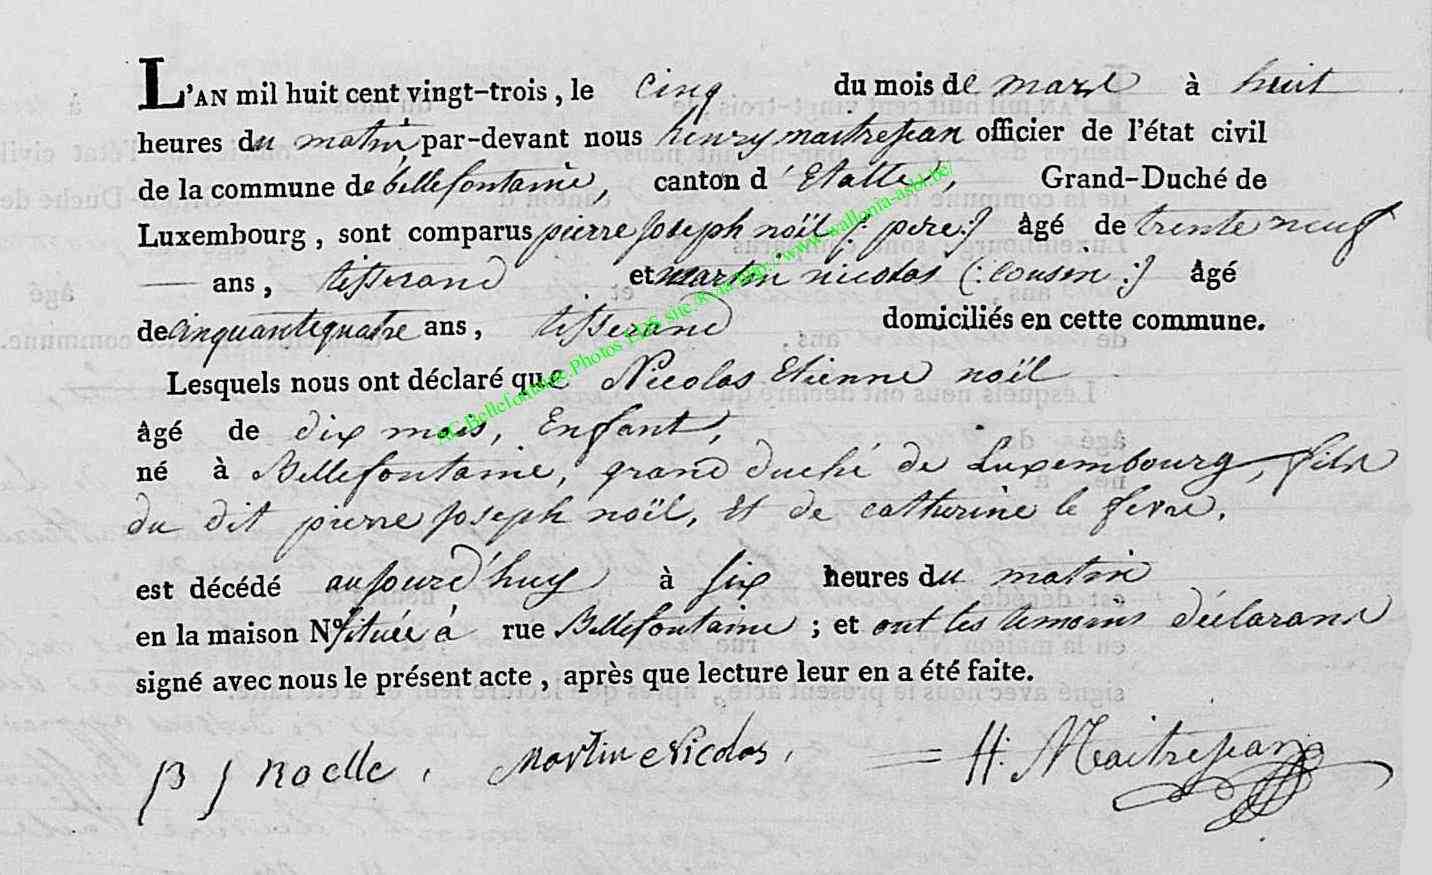 L'AN mil huit cent vingt-trois, le cinq du mois de mars à huit
heures du matin par-devant nous henry maitrejean officier de l'état civil
de la commune de bellefontaine, canton d'Etalle, Grand-Duché de
Luxembourg, sont comparus pierre joseph noël (: pere :) âgé de trente neuf
— ans, tisserand et martin nicolas (: cousin :) âgé
de cinquantequatre ans, tisserand domiciliés en cette commune.
Lesquels nous ont déclaré que Nicolas Etienne noël
âgé de dix mois, Enfant,
né à Bellefontaine, grand duché de Luxembourg, fils
du dit pierre joseph noël, et de catherine le fevre.
est décédé aujourd'huy à six heures du matin
en la maison N° située à rue Bellefontaine ; et ont les temoins déclarans
signé avec nous le présent acte, après que lecture leur en a été faite.
P J Noelle. Martin Nicolas. H. Maitrejean
AC.Bellefontaine.Photos site http://www.wallonia-asbl.be/